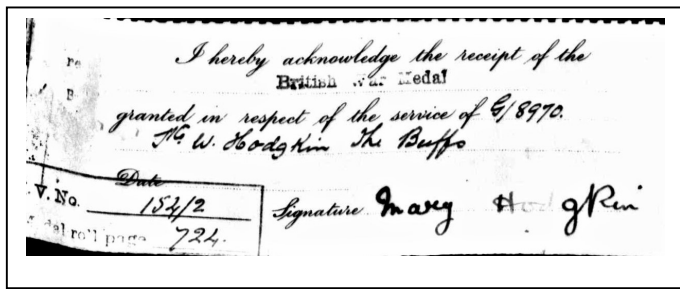 I hereby acknowledge the receipt of the
British War Medal
granted in respect of the service of G/8970.
W. Hodgkin The Buffs
Date
V. No. 154/2
Signature Mary Hodgkin
roll page 724.